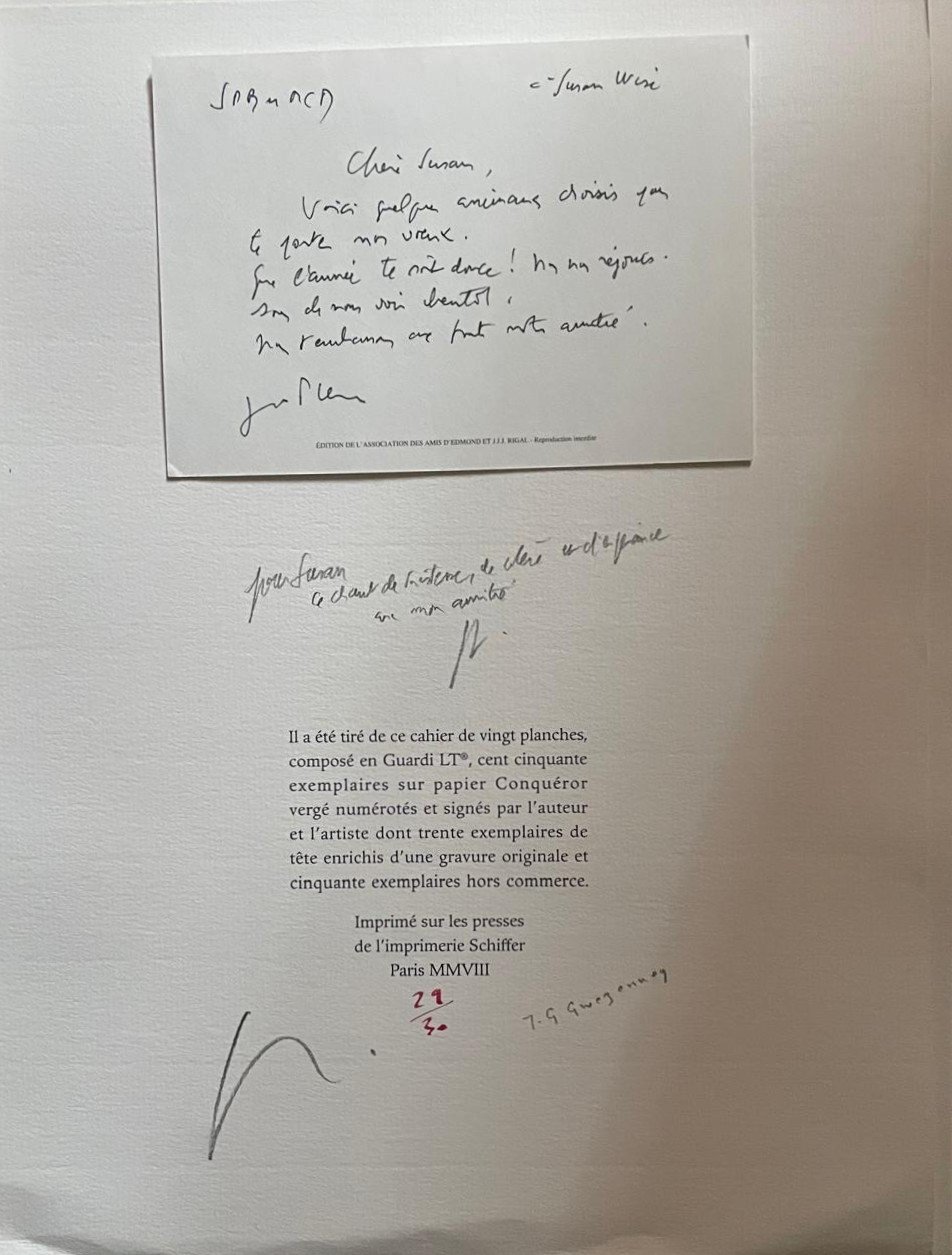 c- Susan Wise
Chère Susan,
Voici quelques animaux choisis pour
te porter nos vœux.
Que l'année te soit douce ! Nous nous réjouis-
sons de nous voir bientôt.
Nous t'embrassons avec toute notre amitié.
ÉDITION DE L'ASSOCIATION DES AMIS D'EDMOND ET J.J.J. RIGAL - Reproduction interdite
pour Susan
ce chant de tristesse, de colère et d'espérance
avec mon amitié
Il a été tiré de ce cahier de vingt planches,
composé en Guardi LT®, cent cinquante
exemplaires sur papier Conquéror
vergé numérotés et signés par l'auteur
et l'artiste dont trente exemplaires de
tête enrichis d'une gravure originale et
cinquante exemplaires hors commerce.
Imprimé sur les presses
de l'imprimerie Schiffer
Paris MMVIII
29/30
J. G Gwezenneg